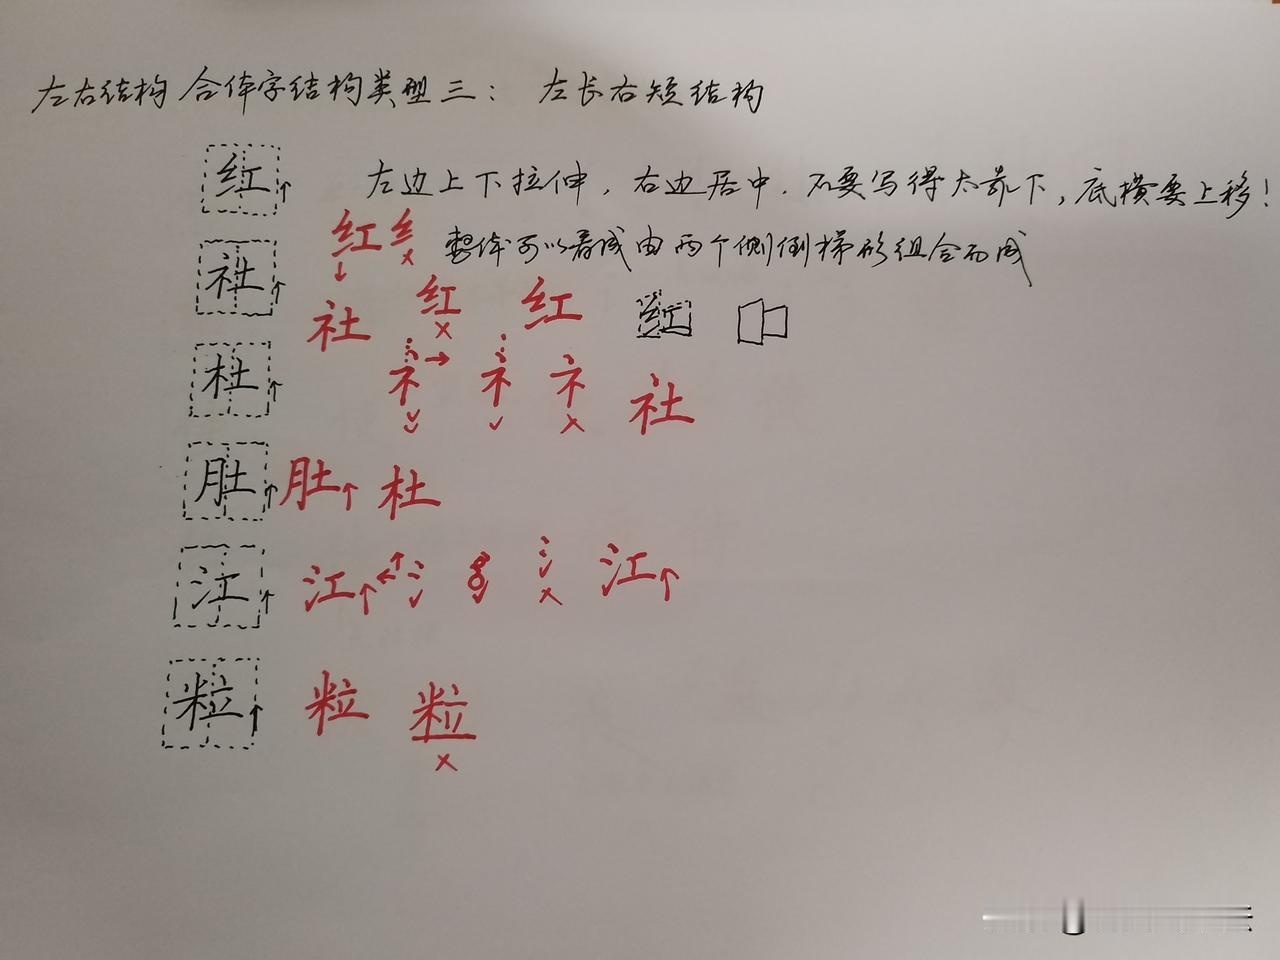 左右结构 合体字结构类型三： 左长右短结构
红 左边上下拉伸，右边居中．不要写得太靠下，底横要上移！
红 纟 整体可以看成由两个侧倒梯形组合而成
社
社 红 红 红
杜 礻 礻 礻 社
肚 肚 杜
江 江 氵 氵 氵 江
粒 粒 粒